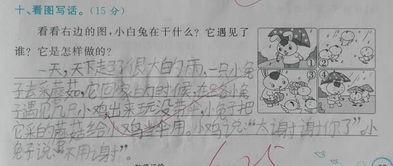 十、看图写话。(15分)
看看右边的图,小白兔在干什么?它遇见了
谁?它是怎样做的?
一天,天下起了很大的雨,一只小兔
子去采蘑菇,它回家的时候,在路
子遇见几只小鸡出来玩没带伞,小兔子把
它采的蘑菇给小鸡当伞用。小鸡说:“太谢谢你了”。小
兔子说:“不用谢”。